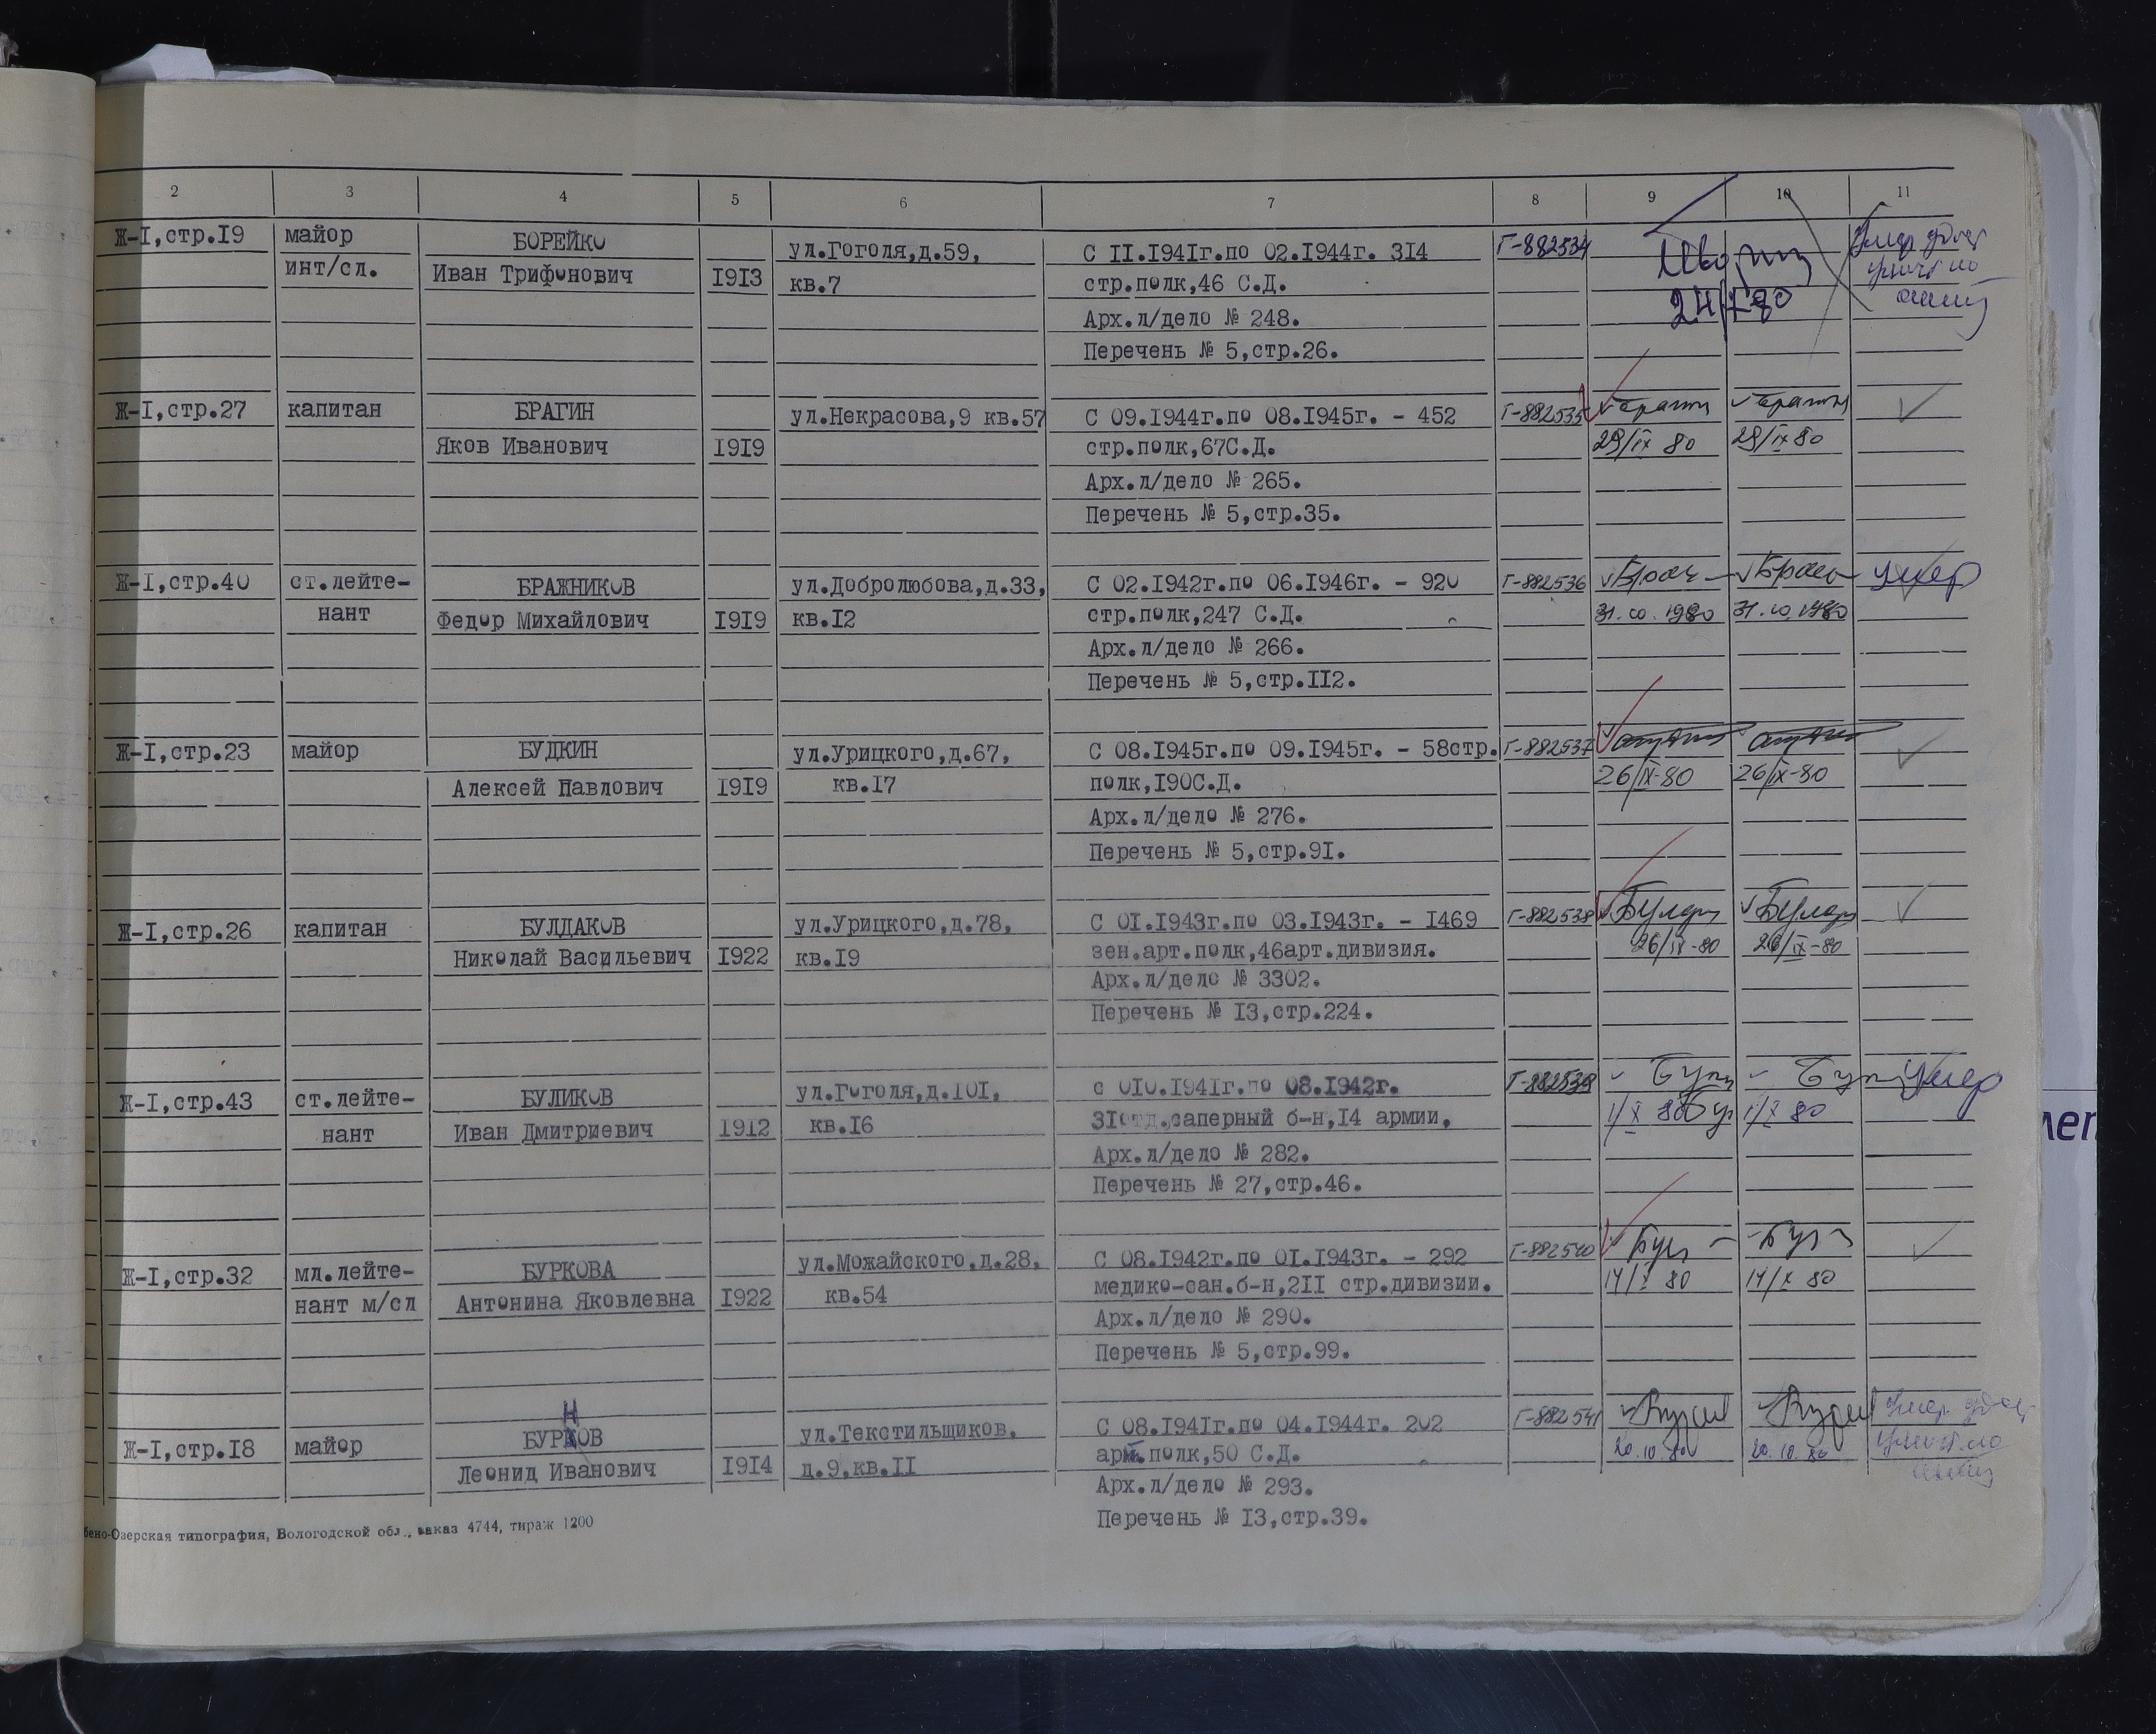 2 3 4 5 6 7 8 9 10 11
Ж-I,стр.I9 майор БОРЕЙКО ул.Гоголя,д.59, С II.I94Iг.по 02.I944г. 3I4 Г-882534
инт/сл. Иван Трифонович I9I3 кв.7 стр.полк,46 С.Д.
Арх.л/дело № 248.
Перечень № 5,стр.26.
Ж-I,стр.27 капитан БРАГИН ул.Некрасова,9 кв.57 С 09.I944г.по 08.I945г. - 452 Г-882535
Яков Иванович I9I9 стр.полк,67С.Д. 29/IX 80 29/IX 80
Арх.л/дело № 265.
Перечень № 5,стр.35.
Ж-I,стр.40 ст.лейте- БРАЖНИКОВ ул.Добролюбова,д.33, С 02.I942г.по 06.I946г. - 920 Г-882536 умер
нант Федор Михайлович I9I9 кв.I2 стр.полк,247 С.Д. 31.10.1980 31.10.1980
Арх.л/дело № 266.
Перечень № 5,стр.II2.
Ж-I,стр.23 майор БУДКИН ул.Урицкого,д.67, С 08.I945г.по 09.I945г. - 58стр. Г-882537
Алексей Павлович I9I9 кв.I7 полк,I90С.Д. 26/IX-80 26/IX-80
Арх.л/дело № 276.
Перечень № 5,стр.9I.
Ж-I,стр.26 капитан БУЛДАКОВ ул.Урицкого,д.78, С 0I.I943г.по 03.I943г. - I469 Г-882538
Николай Васильевич I922 кв.I9 зен.арт.полк,46арт.дивизия. 26/IX-80 26/IX-80
Арх.л/дело № 3302.
Перечень № I3,стр.224.
Ж-I,стр.43 ст.лейте- БУЛИКОВ ул.Гоголя,д.I0I, с 0I0.I94Iг.по 08.I942г. Г-882539 умер
нант Иван Дмитриевич I9I2 кв.I6 3Iотд.саперный б-н,I4 армии, 1/X 80 1/X 80
Арх.л/дело № 282.
Перечень № 27,стр.46.
Ж-I,стр.32 мл.лейте- БУРКОВА ул.Можайского,д.28, С 08.I942г.по 0I.I943г. - 292 Г-882540
нант м/сл Антонина Яковлевна I922 кв.54 медико-сан.б-н,2II стр.дивизии. 14/X 80 14/X 80
Арх.л/дело № 290.
Перечень № 5,стр.99.
Н
Ж-I,стр.I8 майор БУРКОВ ул.Текстильщиков, С 08.I94Iг.по 04.I944г. 202 Г-882541
Леонид Иванович I9I4 д.9,кв.II арт.полк,50 С.Д. 20.10.80 20.10.80
Арх.л/дело № 293.
Перечень № I3,стр.39.
бено-Озерская типография, Вологодской обл., заказ 4744, тираж 1200